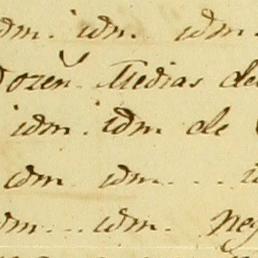 idm. idm. idm.
Dozen. Medias de
idm. idm. de
idm idm - - -
idm - - - idm. neg